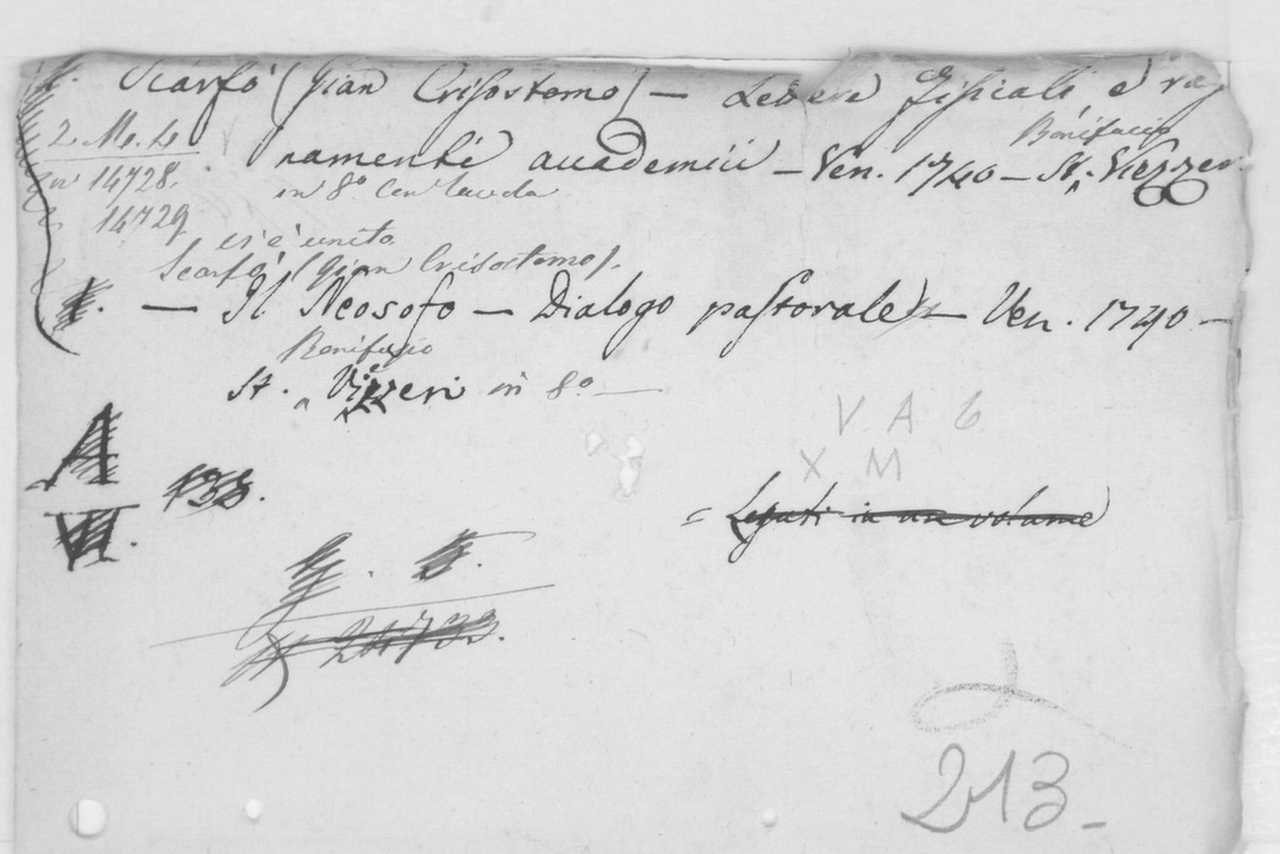 Scarfò (Gian Crisostomo) — Lettere Fisicali, e rag
2. Me. L
namenti accademici — Ven. 1740 — St. Bonifacio Viezzeri
n 14728.
in 8º con tavola
14729
vi è unito
Scarfò (Gian Crisostomo).
— Il Neosofo — Dialogo pastorale — Ven. 1740 —
St. Bonifacio Viezzeri in 8º —
V A 6
X M
A
VI. 133.
= Legati in un volume
24733.
213 -